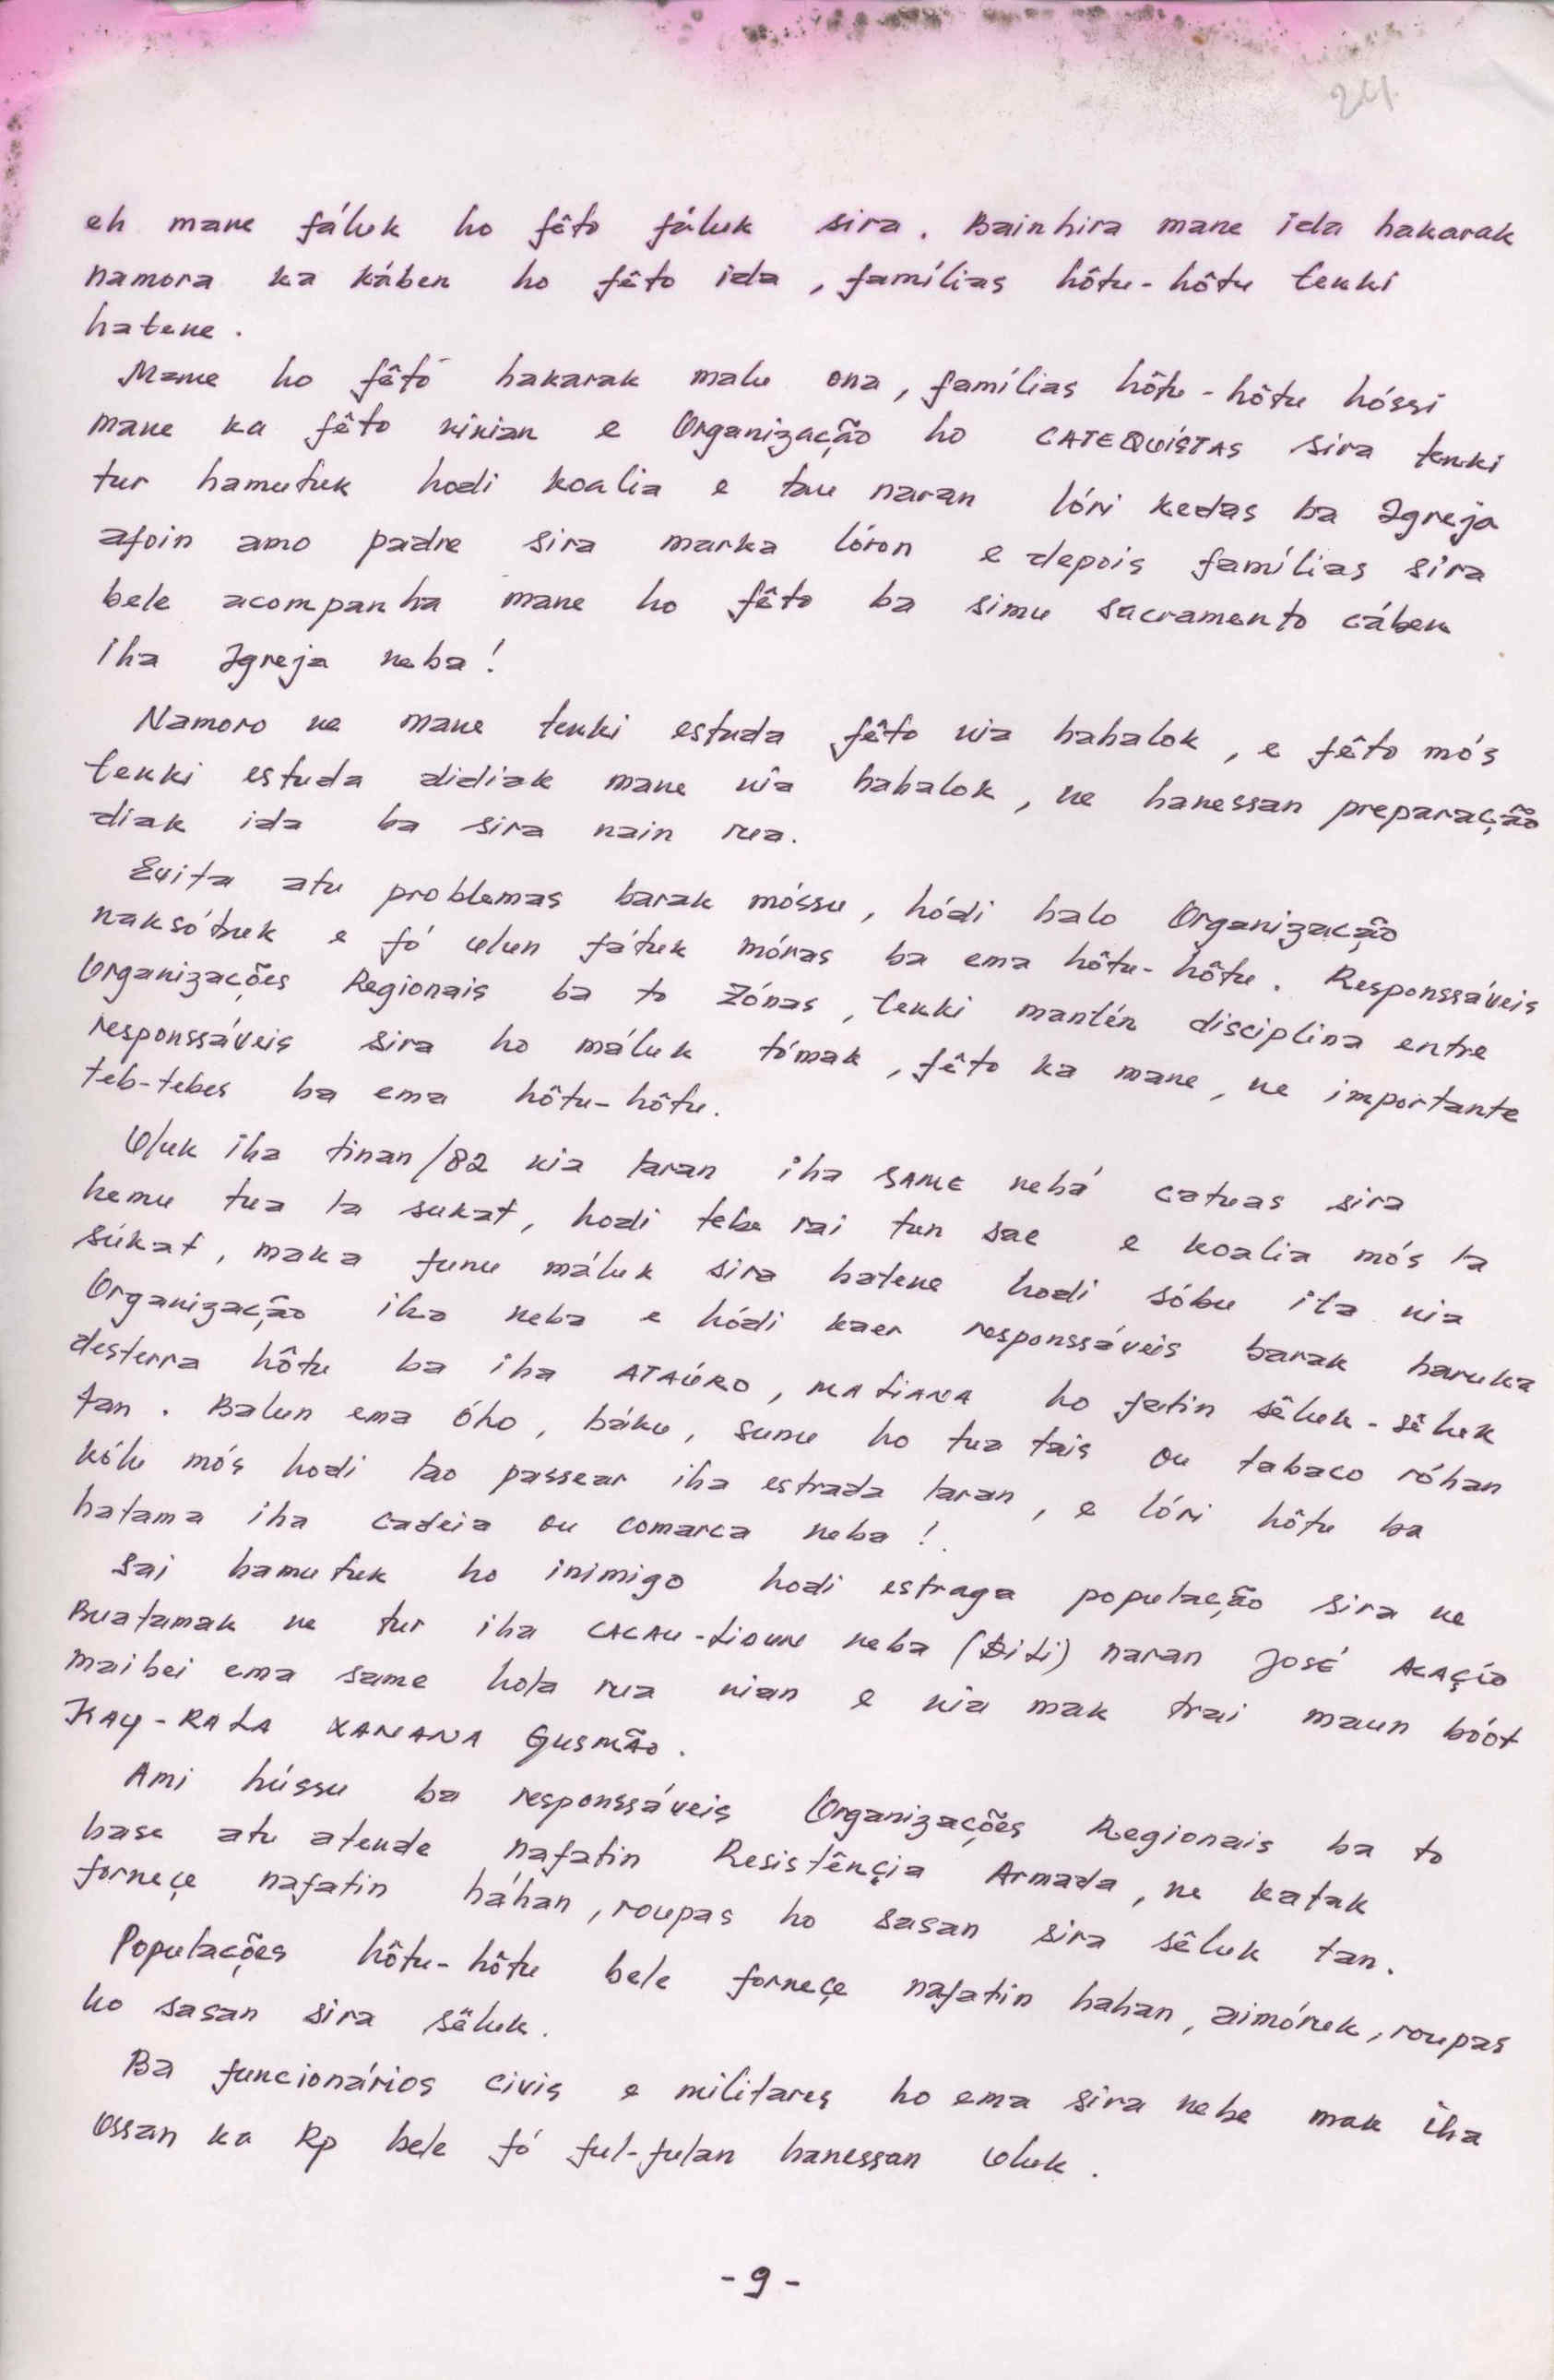 24
eh mane fáluk ho fêto fáluk sira. Bainhira mane ida hakarak
namora ka káben ho fêto ida, famílias hôtu-hôtu tenki
hatene.
Mane ho fêtó hakarak malu ona, famílias hôtu-hôtu hóssi
mane ka fêto ninian e Organização ho CATEQUÍSTAS sira tenki
tur hamutuk hodi koalia e tau naran lóri kedas ba Igreja
afoin amo padre sira marka lóron e depois famílias sira
bele acompanha mane ho fêto ba simu sacramento cáben
iha Igreja neba!
Namoro ne mane tenki estuda fêto nia hahalok, e fêto mós
tenki estuda didiak mane nia hahalok, ne hanessan preparação
diak ida ba sira nain rua.
Evita atu problemas barak móssu, hódi halo Organização
naksótuk e fó ulun fátuk móras ba ema hôtu-hôtu. Responssáveis
Organizações Regionais ba to Zónas, tenki mantén disciplina entre
responssáveis sira ho máluk tómak, fêto ka mane, ne importante
teb-tebes ba ema hôtu-hôtu.
Uluk iha tinan/82 nia laran iha SAME nebá catuas sira
hemu tua la sukat, hodi tebe rai tun sae e koalia mós la
súkat, maka funu máluk sira hatene hodi sóbu ita nia
Organização iha neba e hódi kaer responssáveis barak haruka
desterra hôtu ba iha ATAÚRO, MALIANA ho fatin sêluk-sêluk
tan. Balun ema óho, báku, sunu ho tua tais ou tabaco róhan
kólu mós hodi lao passear iha estrada laran, e lóri hôtu ba
hatama iha cadeia ou comarca neba!
Sai hamutuk ho inimigo hodi estraga população sira ne
Buatamak ne tur iha CACAU-LIDUN neba (DiLi) naran JOSÉ ACAÇÍO
maibei ema same hola rua nian e nia mak trai maun bóot
KAY-RALA XANANA GUSMÃO.
Ami hússu ba responssáveis Organizações Regionais ba to
base atu atende nafatin Resistênçia Armada, ne katak
forneçe nafatin háhan, roupas ho sasan sira sêluk tan.
Populações hôtu-hôtu bele forneçe nafatin hahan, aimóruk, roupas
ho sasan sira sêluk.
Ba funcionários civis e militares ho ema sira nebe mak iha
Ossan ka Rp bele fó ful-fulan hanessan uluk.
- 9 -